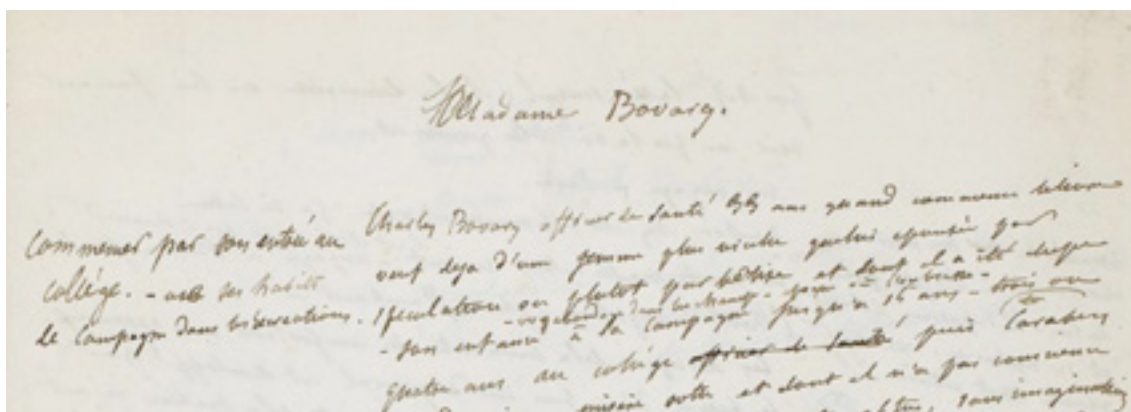 Madame Bovary.
Commencer par son entrée au
collège. - avec ses habits
de campagne dans les récréations.
Charles Bovary officier de santé 33 ans quand commence le livre
veuf déjà d'une femme plus vieille que lui épousée par
spéculation ou plutôt par bêtise et dont il a été dupe
- vagabondage dans les champs -
- son enfance à la campagne jusqu'à 15 ans - trois ou
quatre ans au collège officier de santé puis Carabin
misère et dont il n'a pas conscience
sans imagination